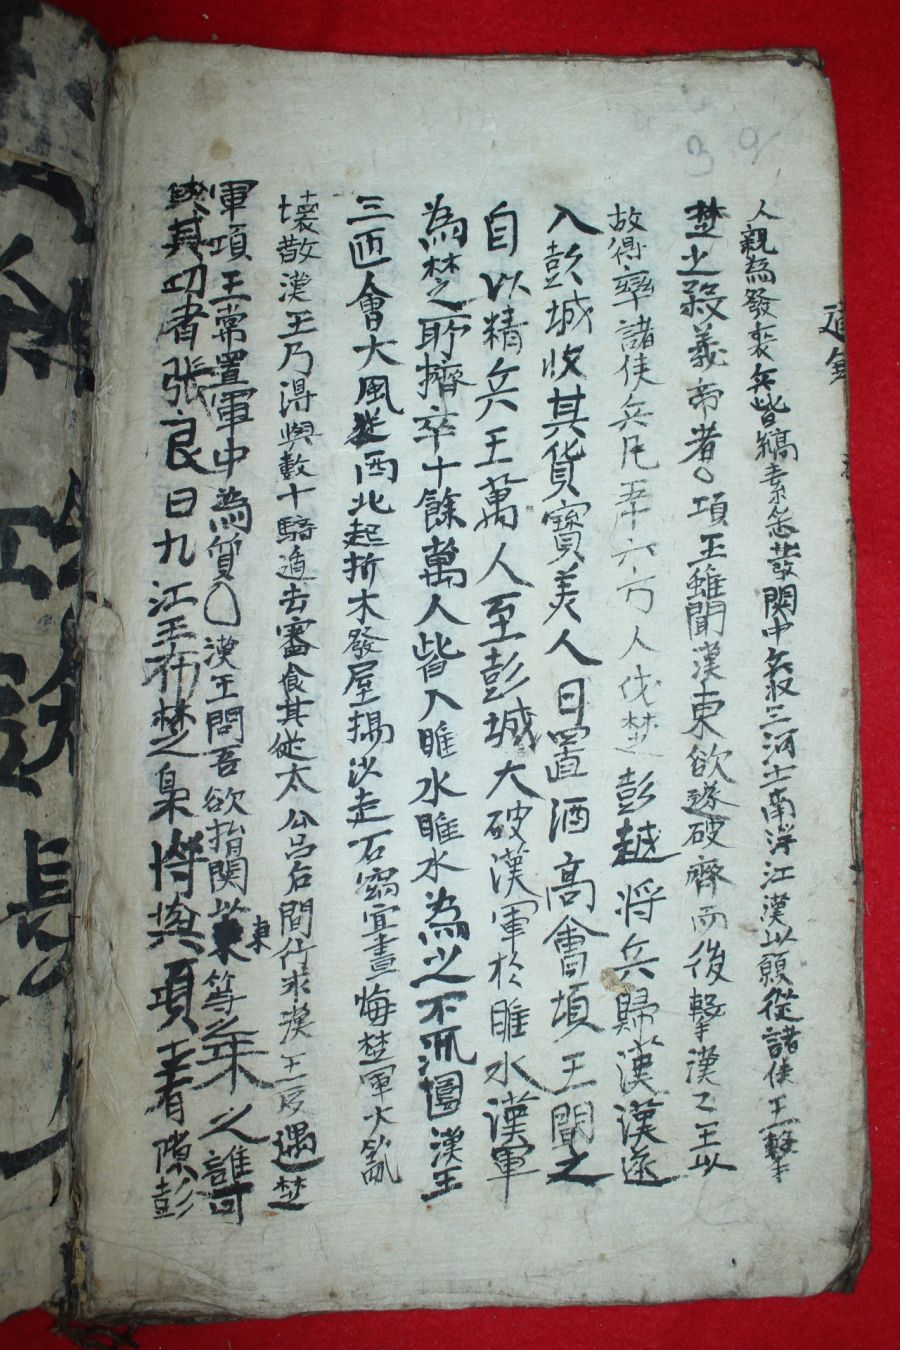 人親為發喪兵皆縞素悉發関中兵收三河士南浮江漢以願從諸侯王擊
楚之殺義帝者○項王雖聞漢東欲遂破齊而後擊漢〻王以
故得率諸侯兵凡五十六万人伐楚彭越将兵歸漢漢遂
入彭城收其貨寶美人日置酒高會項王聞之
自以精兵三萬人至彭城大破漢軍於睢水漢軍
為楚所擠卒十餘萬人皆入睢水睢水為之不流圍漢王
三匝會大風從西北起折木發屋揚沙走石窈冥晝晦楚軍大亂
壞散漢王乃得與數十騎遁去審食其從太公呂后間行求漢王反遇楚
軍項王常置軍中為質○漢王問吾欲捐関以東等棄之誰可
與共功者張良曰九江王布楚之梟将與項王有隙彭
東
通
39